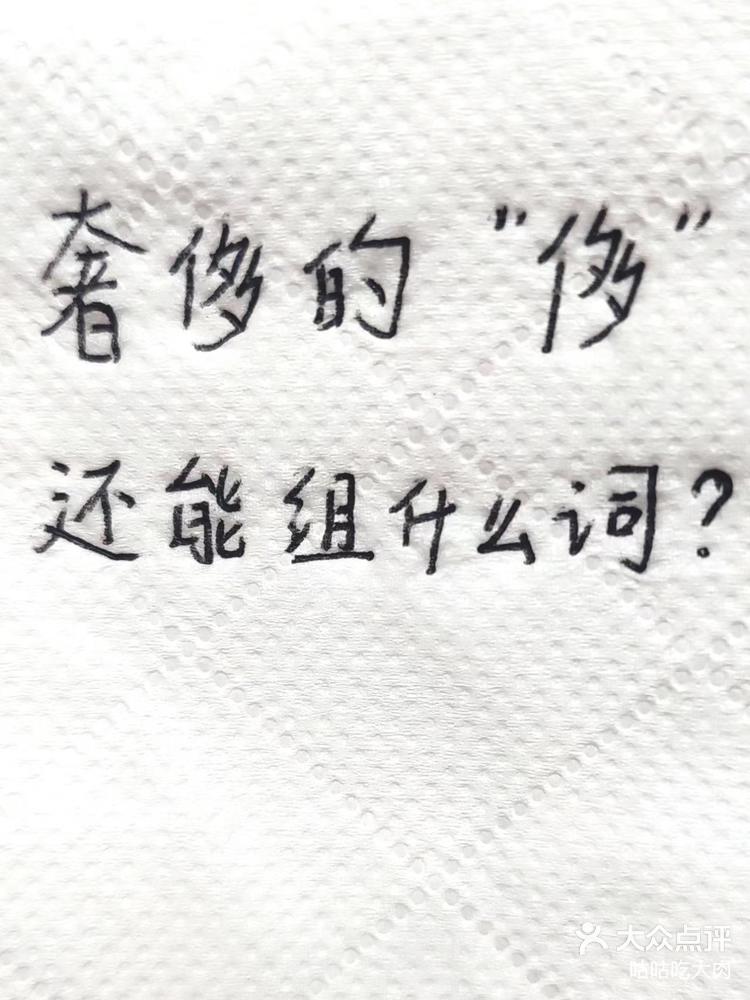 奢侈的“侈”
还能组什么词?
大众点评
咕咕吃大肉